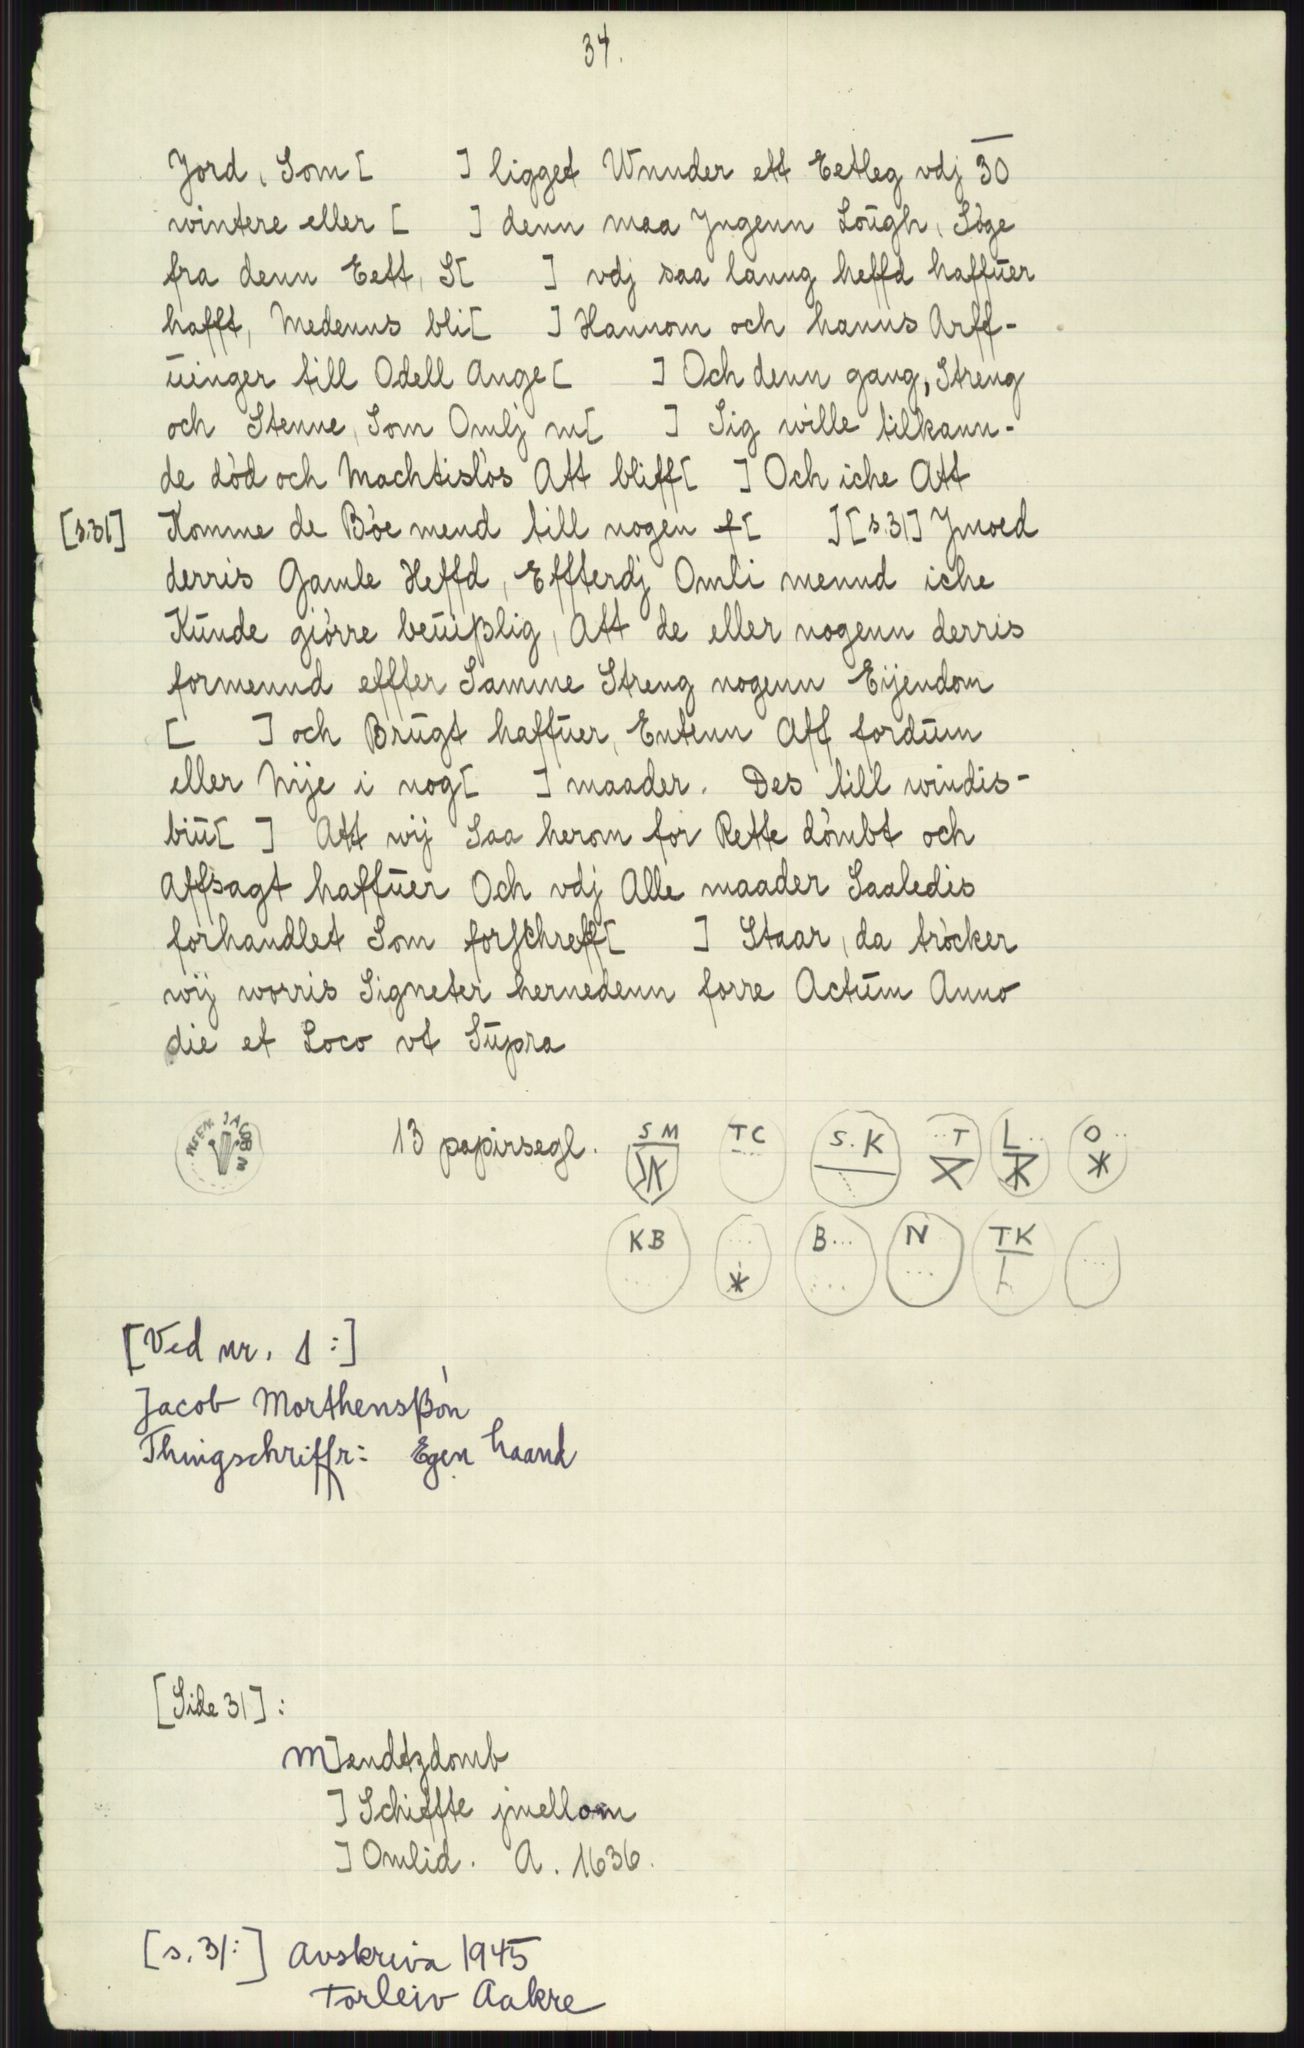 34.
Jord, Som [ ] ligget Wnnder ett Eetleg vdj 30
wintere eller [ ] denn maa Jngenn Loŭgh, Söge
fra denn Eett, S[ ] vdj saa lanng heffd haffŭer
hafft, Medenns bli[ ] Hannom och hanns Arff-
ŭinger till Odell Ange[ ] Och denn gang, Streng
och Stenne, Som Omlj m[ ] Sig wille tilkann-
de död och Machtislös Att bliff[ ] Och iche Att
[s.31] Komme de Böe mend till nogen f[ ] [s.31] Jmoed
derris Gamle Heffd, Effterdj Omli mennd iche
Kŭnde giörre beŭißlig, Att de eller nogenn derris
formennd effter Samme Streng nogenn Eijendom
[ ] och Brŭgt haffŭer, Entenn Aff fordŭm
eller Nije i nog[ ] maader. Des till windis-
biŭ[ ] Att wij Saa herom for Rette dömbt och
Affsagt haffŭer Och vdj Alle maader Saaledis
forhandlet Som forschreff[ ] Staar, da tröcker
wij worris Signeter hernedenn forre Actŭm Anno
die et Loco vt Sŭpra
13 papirsegl.
SM TC S.K ..T L.. O..
KB ... B... N TK ...
[Ved nr. 1:]
Jacob Morthensßön
Thingschriffr: Egen haand
[Side 31]:
M]endtzdomb
] Schiffte jmellom
] Omlid. A. 1636.
[s. 31:] Avskriva 1945
Torleiv Aakre